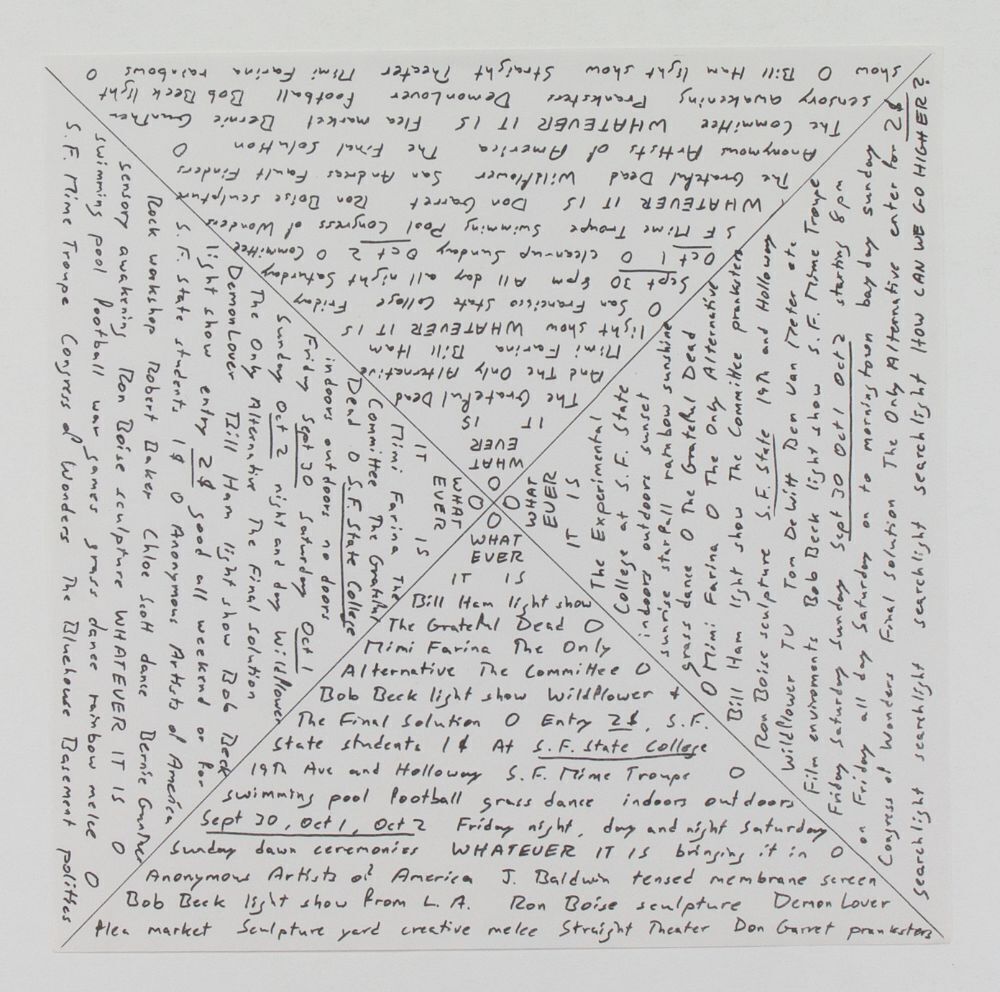 O
WHAT
EVER
IT IS
The Grateful Dead
And The Only Alternative
Mimi Farina Bill Ham
light show WHATEVER IT IS
O San Francisco State College Friday
Sept 30 8pm All day all night Saturday
Oct 1 O cleanup Sunday Oct 2 O Committee
S F Mime Troupe Swimming Pool Congress of Wonders
WHATEVER IT IS Don Garret Ron Boise sculpture
The Grateful Dead Wildflower San Andreas Fault Finders
Anonymous Artists of America The Final Solution O
The Committee WHATEVER IT IS Flea market Bernie Gunther
sensory awakening Pranksters DemonLover Football Bob Beck light
show O Bill Ham light show Straight Theater Mimi Farina rainbows O
O
WHAT
EVER
IT IS
The Experimental
College at S.F. State
indoors outdoors sunset
sunrise starfall rainbow sunshine
grass dance O The Grateful Dead
O Mimi Farina O The Only Alternative
Bill Ham light show The Committee pranksters
Ron Boise sculpture S.F. State 19th and Holloway
Wildflower TV Tom DeWitt Den Van Meter etc
Film enviroments Bob Beck light show S.F. Mime Troupe
Friday Saturday Sunday Sept 30 Oct 1 Oct 2 stating 8pm
on Friday all day Saturday on to morningstown bay day sunday
Congress of Wonders Final Solution The Only Alternative enter for 2$
Searchlight searchlight searchlight searchlight HOW CAN WE GO HIGHER?
O
WHAT
EVER
IT IS
Bill Ham light show
The Grateful Dead O
Mimi Farina The Only
Alternative The Committee O
Bob Beck light show Wildflower +
The Final Solution O Entry 2$, S.F.
State students 1$ At S.F. State College
19th Ave and Holloway S.F. Mime Troupe O
swimming pool football grass dance indoors outdoors
Sept 30, Oct 1, Oct 2 Friday night, day and night Saturday
Sunday dawn ceremonies WHATEVER IT IS bringing it in O
Anonymous Artists of America J. Baldwin tensed membrane screen
Bob Beck light show from L.A. Ron Boise sculpture Demon Lover
flea market Sculpture yard creative melee Straight Theater Don Garret pranksters
O
WHAT
EVER
IT IS
Mimi Farina The
Committee The Grateful
Dead O S.F. State College
indoors outdoors no doors
Friday Sept 30 Saturday Oct 1
Sunday Oct 2 night and day Wildflower
The Only Alternative The Final Solution
DemonLover Bill Ham light show Bob Beck
light show entry 2$ good all weekend or for
S.F. State students 1$ O Anonymous Artists of America
Rock workshop Robert Baker Chloe Scott dance Bernie Gunther
sensory awakening Ron Boise sculpture WHATEVER IT IS O
swimming pool football war games grass dance rainbow melee O
S.F. Mime Troupe Congress of Wonders The Bluehouse Basement politics